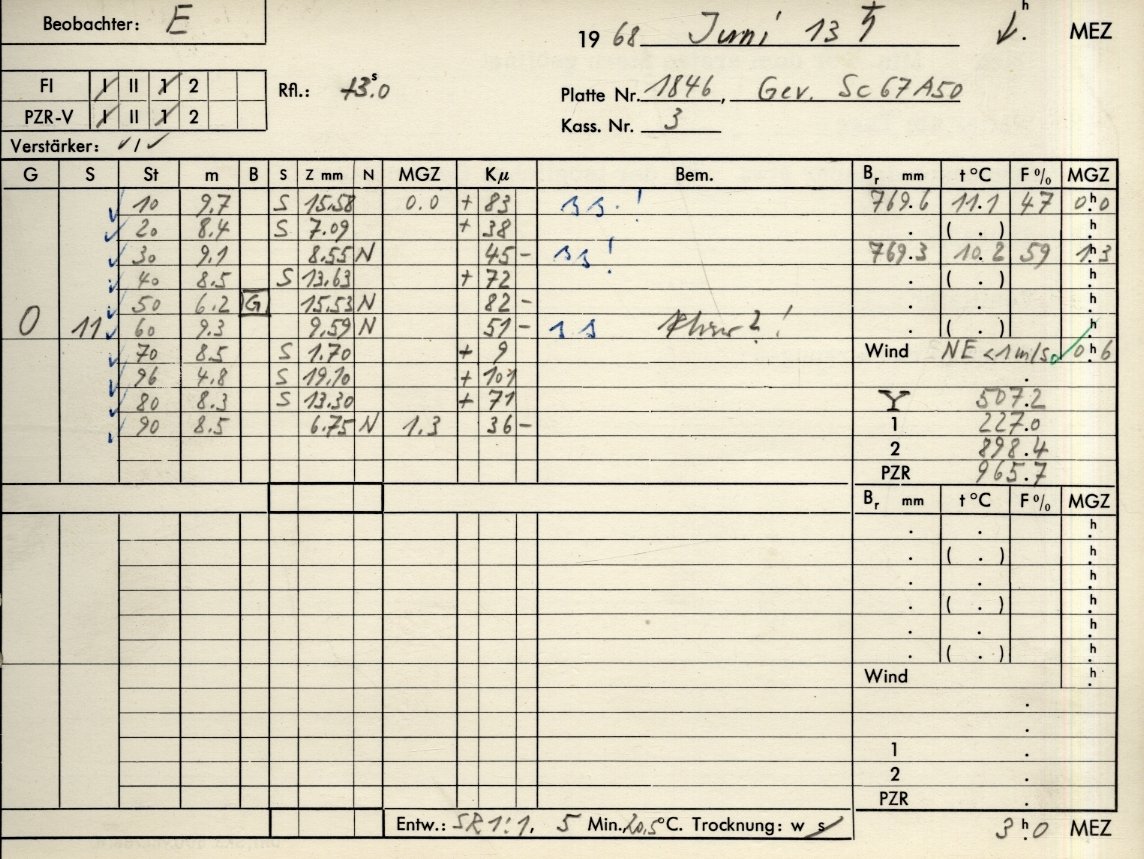 Beobachter: E
19 68 Juni 13 h . MEZ
FI I II 1 2
Rfl.: +3.0 s
Platte Nr. 1846, Gev. Sc67A50
PZR-V I II 1 2
Kass. Nr. 3
Verstärker: ✓ 1 ✓
G S St m B S Z mm N MGZ Kμ Bem. Br mm t °C F % MGZ
10 9.7 S 15.58 0.0 + 83 ss.! 769.6 11.1 47 0h.0
20 8.4 S 7.09 + 38 . ( . ) h
30 9.1 8.55 N 45 - ss! 769.3 10.2 59 1h.3
40 8.5 S 13.63 + 72 . ( . ) h
50 6.2 G 15.53 N 82 - . . h
0 11 60 9.3 9.59 N 51 - ss ! . ( . ) h
70 8.5 S 1.70 + 9 Wind NE <1 m/s 0h.6
96 4.8 S 19.10 + 101 .
80 8.3 S 13.30 + 71 Y 507.2
90 8.5 6.75 N 1.3 36 - 1 227.0
2 898.4
PZR 965.7
Br mm t °C F % MGZ
. . h
. ( . ) h
. . h
. ( . ) h
. . h
. ( . ) h
Wind h
.
.
1 .
2 .
PZR .
Entw.: SR 1:1, 5 Min. 20,5 °C. Trocknung: w s
3h.0 MEZ